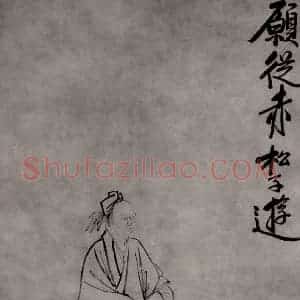 願從赤松子遊
Shufaziliao.COM